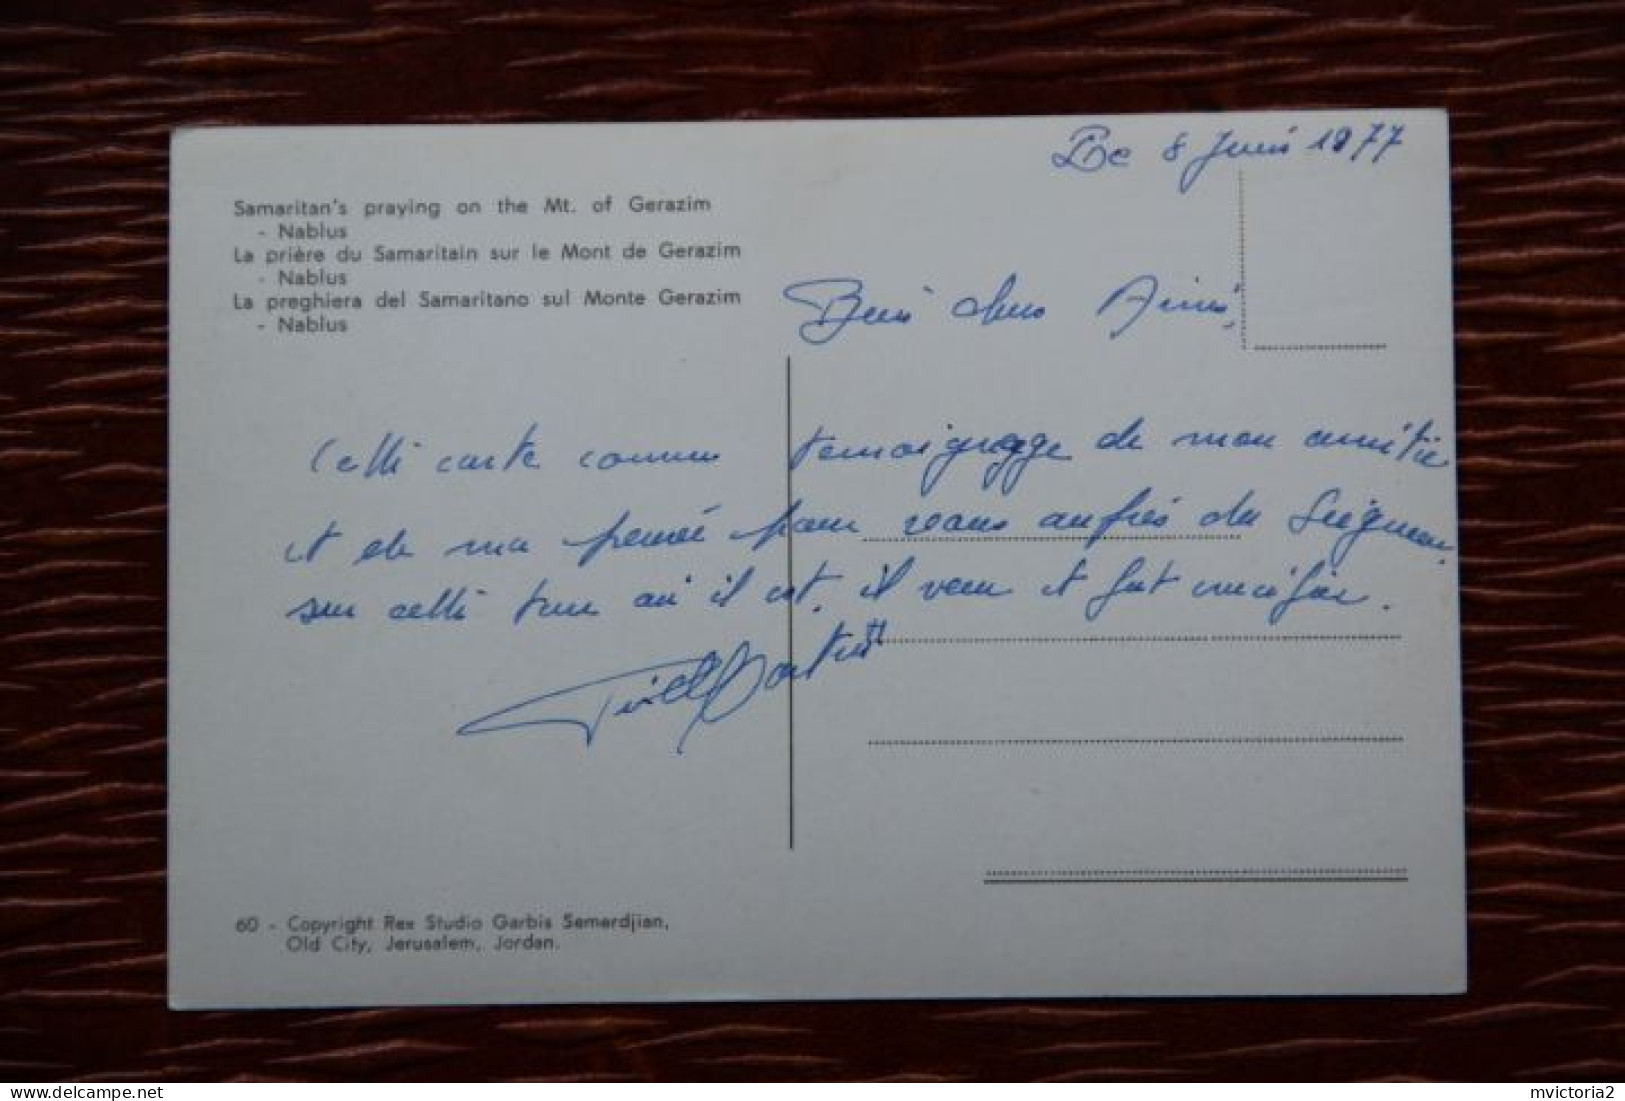 Le 8 Juin 1977
Samaritan's praying on the Mt. of Gerazim
- Nablus
La prière du Samaritain sur le Mont de Gerazim
- Nablus
La preghiera del Samaritano sul Monte Gerazim
- Nablus
Bien chers Amis,
Cette carte comme temoignage de mon amitié
et de ma pensée pour vous auprès du Seigneur
sur cette terre où il est, il vecu et fut crucifié.
60 - Copyright Rex Studio Garbis Semerdjian,
Old City, Jerusalem, Jordan.
delcampe.net
mvictoria2